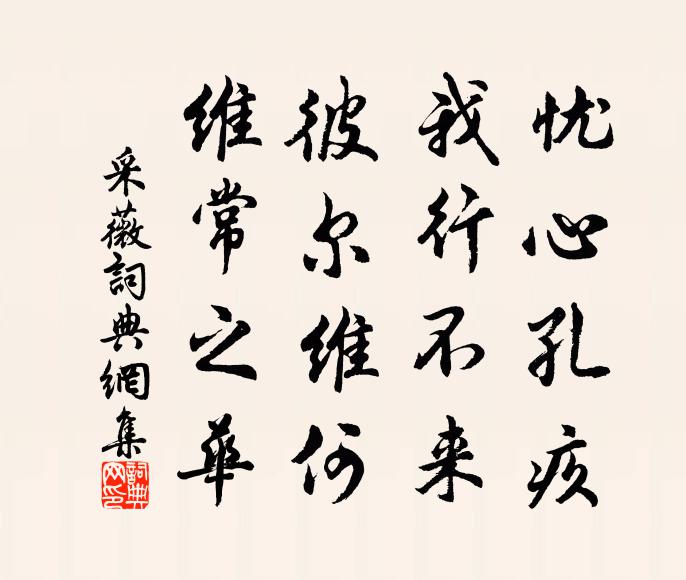 忧心孔疚
我行不来
彼尔维何
维常之華
采薇詞典網集
詞典
网印